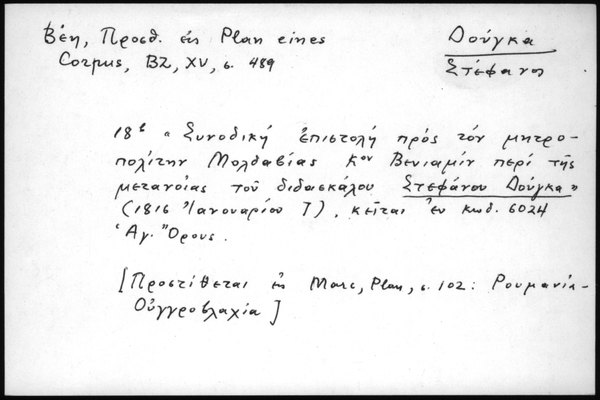 Βέη, Προσθ. εἰς Plan eines
Corpus, BZ, XV, σ. 489
Δούγκα
Στέφανος
18ς « Συνοδικὴ ἐπιστολὴ πρὸς τὸν μητρο-
πολίτην Μολδαβίας κον Βενιαμὶν περὶ τῆς
μετανοίας τοῦ διδασκάλου Στεφάνου Δούγκα»
(1816 Ἰανουαρίου 7), κεῖται ἐν κωδ. 6024
Ἁγ. Ὄρους.
[Προστίθεται εἰς Marc, Plan, σ. 102: Ρουμανία-
Οὐγγροβλαχία]